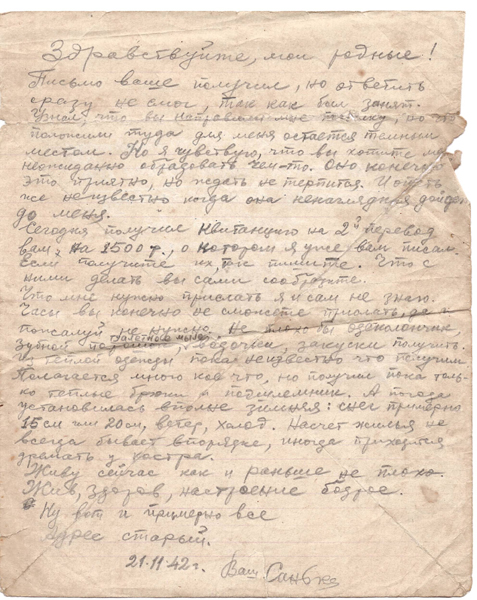 Здравствуйте, мои родные!
Письмо ваше получил, но ответить
сразу не смог, так как был занят.
Узнал, что вы направили мне посылку, но что
положили туда для меня остается темным
местом. Но я чувствую, что вы хотите
неожиданно обрадовать чем-то. Оно конечно
это приятно, но ждать не терпится. И опять
же неизвестно когда она ненаглядная дойдет
до меня.
Сегодня получил квитанцию на 2й перевод
вам, на 2500 р., о котором я уже вам писал.
Если получите их, то пишите. Что с
ними делать вы сами сообразите.
Что мне нужно прислать я и сам не знаю.
Часы вы конечно не сможете прислать, да и
пожалуй не нужно. Не плохо бы одеколончик,
туалетного мыла
зубной порошок, закуски получить.
Из теплой одежды пока неизвестно что получим.
Полагается много кой что, но получил пока толь-
ко теплые брюки и подшлемник. А погода
установилась вполне зимняя: снег примерно
15 см или 20 см, ветер, холод. Насчет жилья не
всегда бывает впорядке, иногда приходится
дремать у костра.
Живу сейчас как и раньше не плохо.
Жив, здоров, настроение бодрое.
Ну вот и примерно все
адрес старый.
21.11.42 г. Ваш